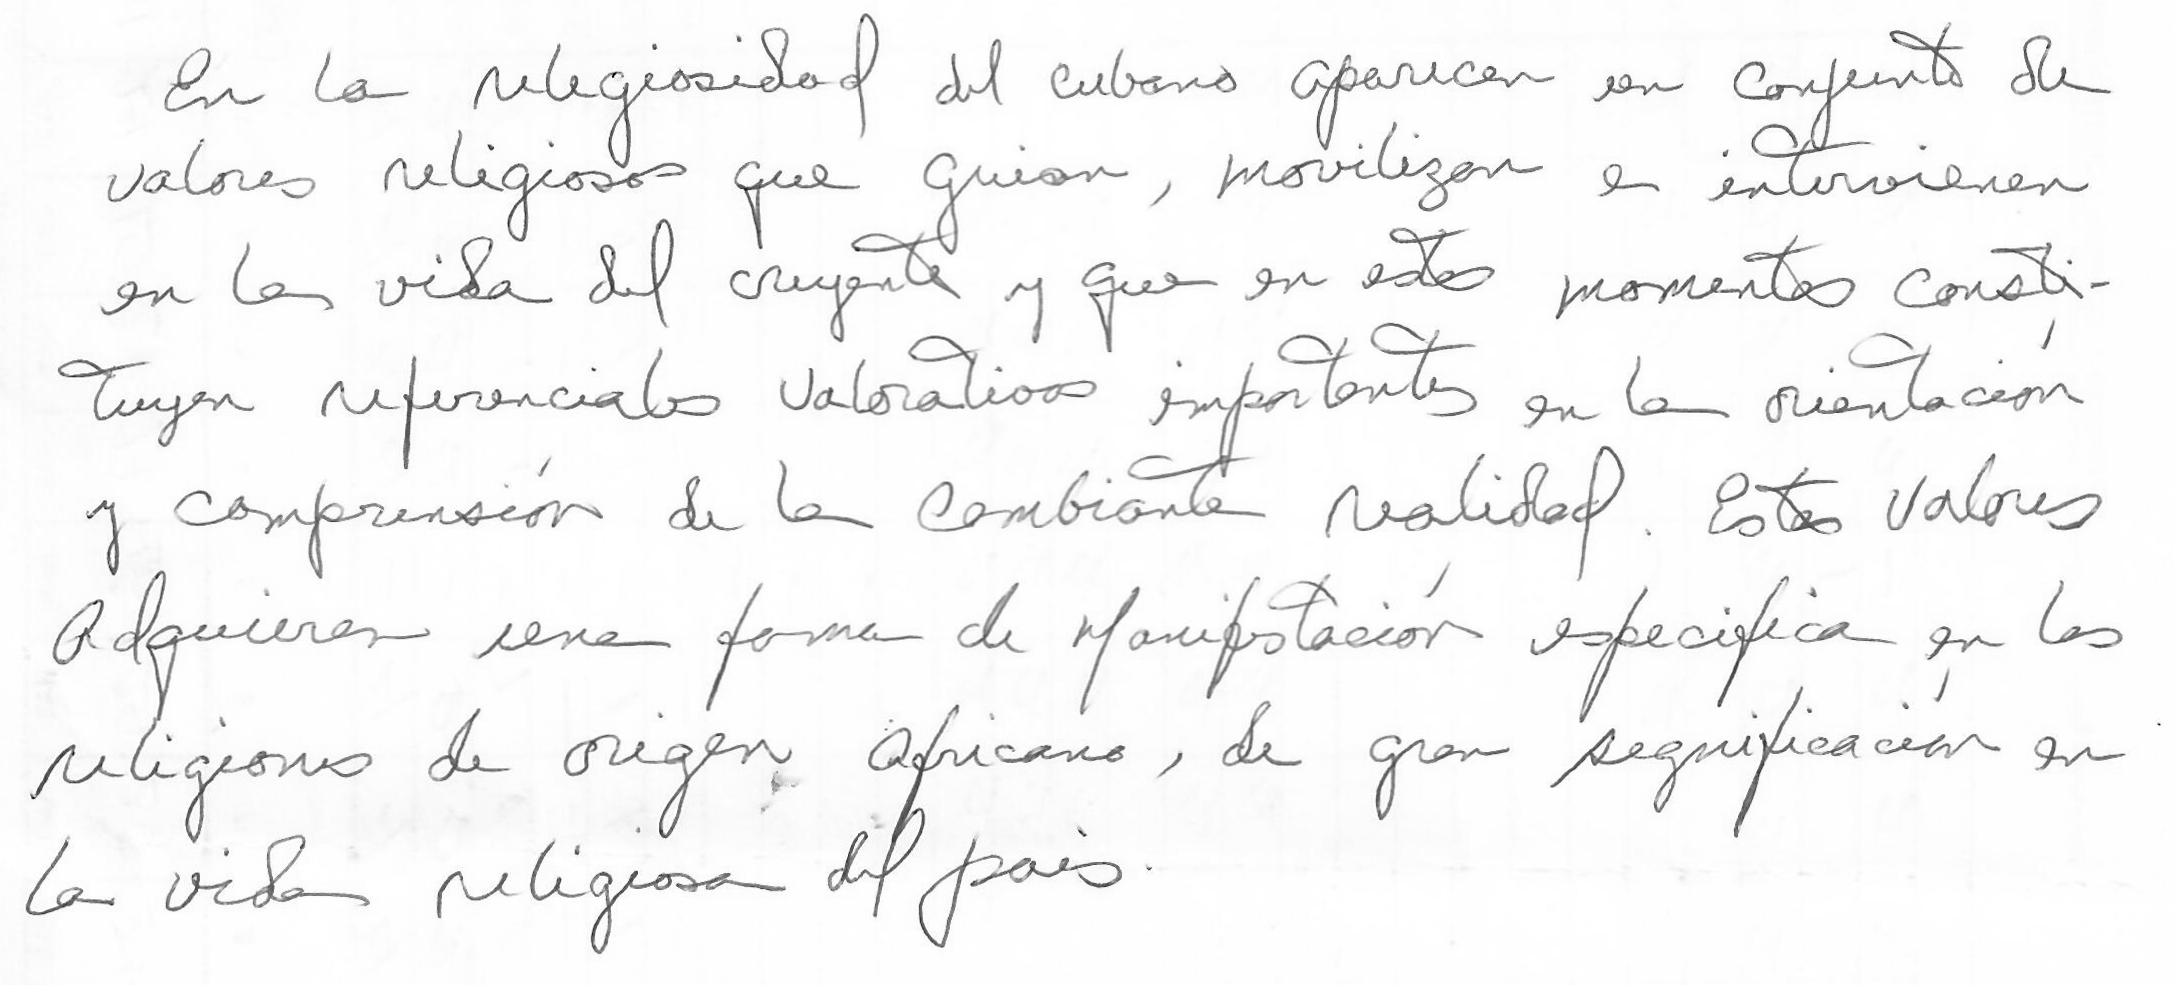 En la religiosidad del cubano aparecen un conjunto de
valores religiosos que guian, movilizan e intervienen
en la vida del creyente y que en estos momentos consti-
tuyen referenciales valorativos importantes en la orientación
y comprensión de la cambiante realidad. Estos valores
adquieren una forma de manifestación especifica en las
religiones de origen africano, de gran significación en
la vida religiosa del pais.